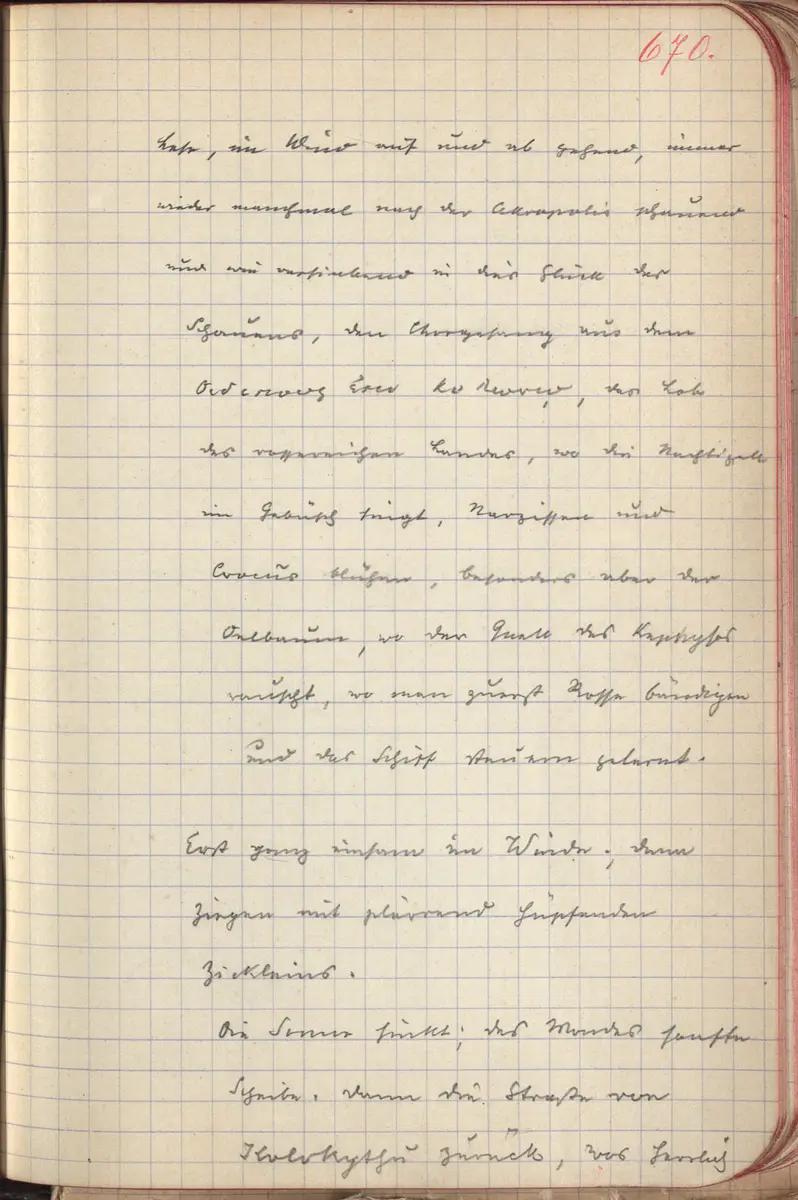 670.
Lese, im Wind auf und ab gehend, immer
wieder manchmal nach der Akropolis schauend
und wie versinkend in das Glück des
Schauens, den Chorgesang aus dem
Οιδιπους ἐπι Κολωνῳ, das Lob
des rossereichen Landes, wo die Nachtigall
im Gebüsch singt, Narzissen und
Crocus blühen, besonders aber der
Oelbaum, wo der Quell des Kephysos
rauscht, wo man zuerst Rosse bändigen
und das Schiff steuern gelernt.
Erst ganz einsam im Winde; dann
Ziegen mit plärrend hüpfenden
Zickleins.
Die Sonne sinkt; des Mondes sanfte
Scheibe. dann die Straße von
Kolokythu zurück, was herrlich